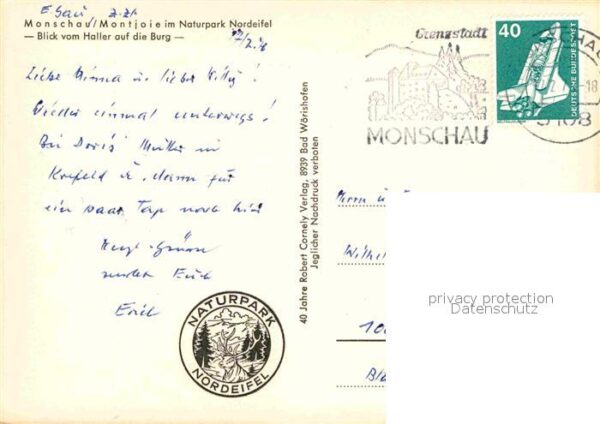 E. Gau z. Zt.
Monschau/Montjoie im Naturpark Nordeifel
— Blick vom Haller auf die Burg —
Liebe Minna u. lieber Willy!
Wieder einmal unterwegs!
Bei Doris' Mutter in
Krefeld u. dann für
ein paar Tage noch hier
Herzl. Grüsse
sendet Euch
Emil
NATURPARK
NORDEIFEL
40 Jahre Robert Cornely Verlag, 8939 Bad Wörishofen
Jeglicher Nachdruck verboten
Grenzstadt
MONSCHAU
40
DEUTSCHE BUNDESPOST
18
5108
Herrn u.
Wilhe
10
privacy protection
Datenschutz